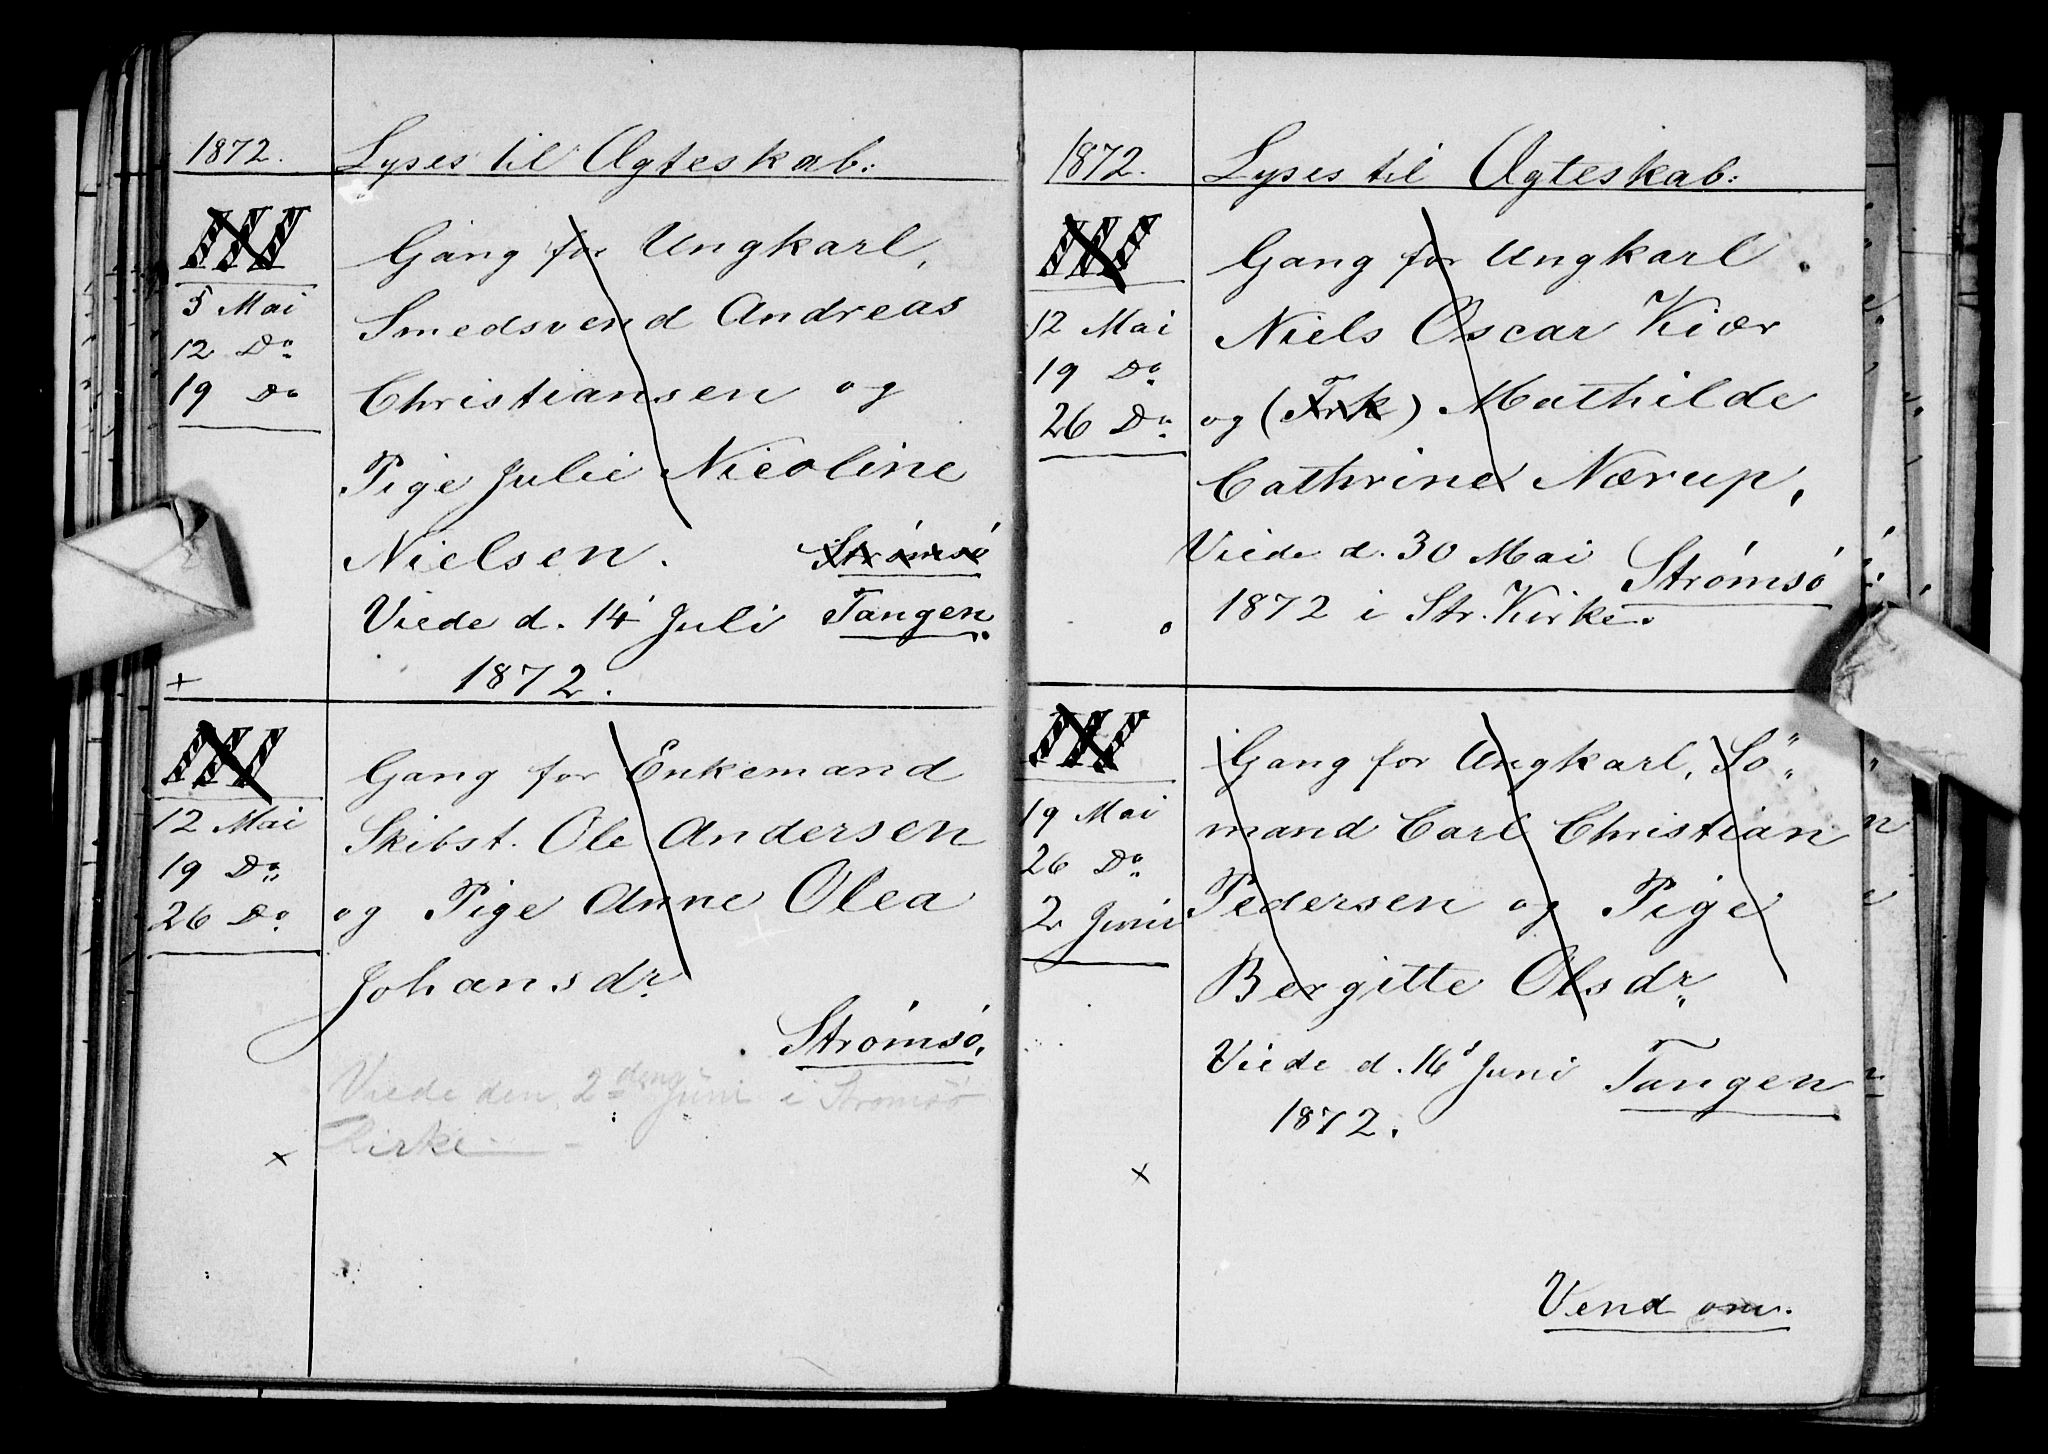 1872. Lyses til Ægteskab:
III
Gang for Ungkarl,
5 Mai
Smedsvend Andreas
12 Do
19 Do
Christiansen og
Pige Julie Nicoline
Nielsen. Strømsö
Viede d. 14 Juli Tangen.
1872.
+
III
Gang for Enkemand
12 Mai
Skibst. Ole Andersen
19 Do
26 Do
og Pige Anne Olea
Johansdr.
Strömsö.
Viede den 2den Juni i Strømsö
Kirke
x
1872. Lyses til Ægteskab:
III
Gang for Ungkarl
12 Mai
Niels Oscar Kiær
19 Do
26 Do
og (Frk) Mathilde
Cathrine Nærup,
Viede d. 30 Mai Strömsö
1872 i Str. Kirke.
III
Gang for Ungkarl, Sö„
19 Mai
mand Carl Christian
26 Do
2 Juni
Pedersen og Pige
Bergitte Olsdr.
Viede d. 16 Juni Tangen
1872.
x
Vend om.